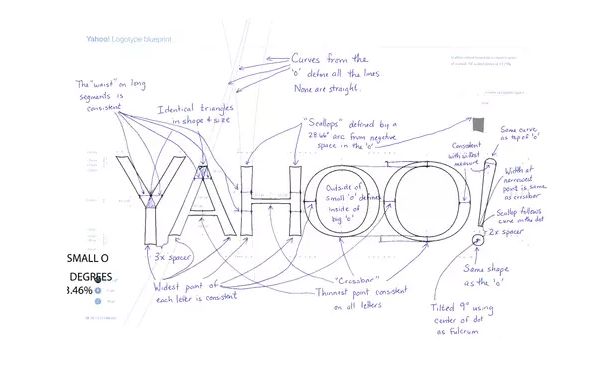 Yahoo! Logotype blueprint
Curves from the
'o' define all the lines
None are straight.
The "waist" on long
segments is
consistent
Identical triangles
in shape & size
"Scallops" defined by a
arc from negative
space in the 'o'
Consistent
with widest
measure
Same curve
as top of 'o'
YAHOO!
Outside of
small 'o' defines
inside of
big 'o'
Width at
narrowest
point is same
as crossbar
Scallop follows
curve in the dot
2x spacer
3x spacer
SMALL O
DEGREES
3.46%
Widest point of
each letter is consistent
"Crossbar"
Thinnest point consistent
on all letters
Same shape
as the 'o'
Tilted 9° using
center of dot
as fulcrum